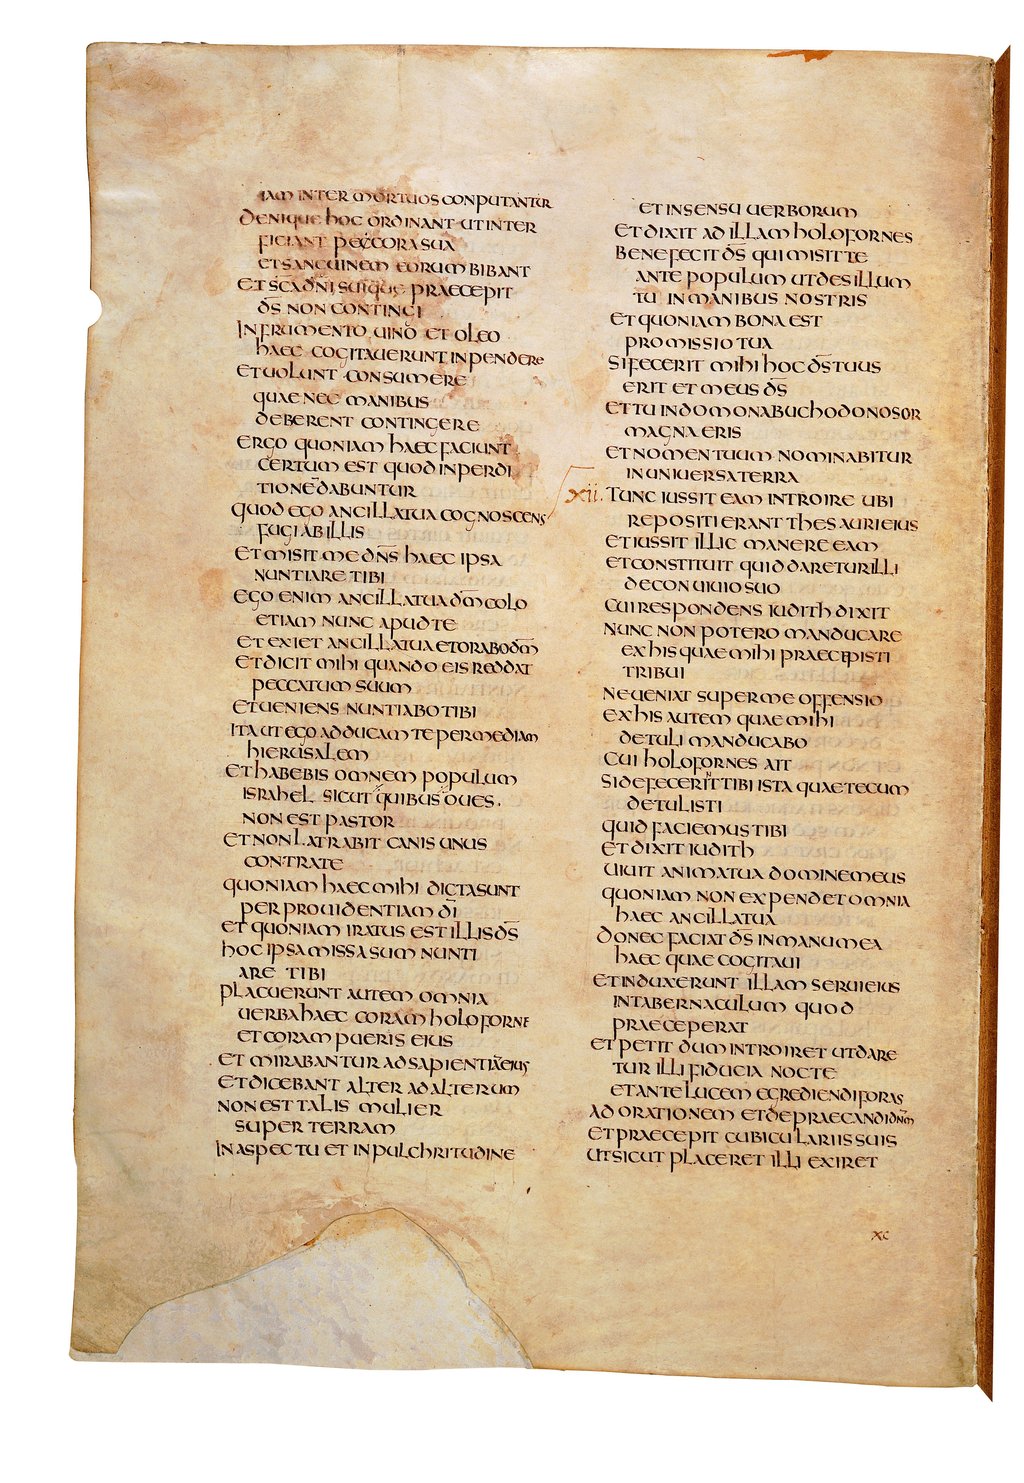 IAM INTER MORTUOS CONPUTANTUR
DENIQUE HOC ORDINANT UT INTER
FICIANT PECCORA SUA
ET SANGUINEM EORUM BIBANT
ET SC̄A DN̄I SUI QUAE PRAECEPIT
DS̄ NON CONTINGI
IN FRUMENTO UINO ET OLEO
HAEC COGITAUERUNT INPENDERE
ET UOLUNT CONSUMERE
QUAE NEC MANIBUS
DEBERENT CONTINGERE
ERGO QUONIAM HAEC FACIUNT
CERTUM EST QUOD IN PERDI
TIONE DABUNTUR
QUOD EGO ANCILLA TUA COGNOSCENS
FUGI AB ILLIS
ET MISIT ME DN̄S HAEC IPSA
NUNTIARE TIBI
EGO ENIM ANCILLA TUA DM̄ COLO
ETIAM NUNC APUD TE
ET EXIET ANCILLA TUA ET ORABO DM̄
ET DICIT MIHI QUANDO EIS REDDAT
PECCATUM SUUM
ET UENIENS NUNTIABO TIBI
ITA UT EGO ADDUCAM TE PER MEDIAM
HIERUSALEM
ET HABEBIS OMNEM POPULUM
ISRAHEL SICUT QUIBUS OUES
NON EST PASTOR
ET NON LATRABIT CANIS UNUS
CONTRA TE
QUONIAM HAEC MIHI DICTA SUNT
PER PROUIDENTIAM DĪ
ET QUONIAM IRATUS EST ILLIS DS̄
HOC IPSA MISSA SUM NUNTI
ARE TIBI
PLACUERUNT AUTEM OMNIA
UERBA HAEC CORAM HOLOFORNE
ET CORAM PUERIS EIUS
ET MIRABANTUR AD SAPIENTIĀ EIUS
ET DICEBANT ALTER AD ALTERUM
NON EST TALIS MULIER
SUPER TERRAM
IN ASPECTU ET IN PULCHRITUDINE
ET IN SENSU UERBORUM
ET DIXIT AD ILLAM HOLOFORNES
BENE FECIT DS̄ QUI MISIT TE
ANTE POPULUM UT DES ILLUM
TU IN MANIBUS NOSTRIS
ET QUONIAM BONA EST
PROMISSIO TUA
SI FECERIT MIHI HOC DS̄ TUUS
ERIT ET MEUS DS̄
ET TU IN DOMO NABUCHODONOSOR
MAGNA ERIS
ET NOMEN TUUM NOMINABITUR
IN UNIUERSA TERRA
XII. TUNC IUSSIT EAM INTROIRE UBI
REPOSITI ERANT THESAURI EIUS
ET IUSSIT ILLIC MANERE EAM
ET CONSTITUIT QUID DARETUR ILLI
DE CONUIUIO SUO
CUI RESPONDENS IUDITH DIXIT
NUNC NON POTERO MANDUCARE
EX HIS QUAE MIHI PRAECEPISTI
TRIBUI
NE UENIAT SUPER ME OFFENSIO
EX HIS AUTEM QUAE MIHI
DETULI MANDUCABO
CUI HOLOFORNES AIT
SI DEFECERINT TIBI ISTA QUAE TECUM
DETULISTI
QUID FACIEMUS TIBI
ET DIXIT IUDITH
UIUIT ANIMA TUA DOMINE MEUS
QUONIAM NON EXPENDET OMNIA
HAEC ANCILLA TUA
DONEC FACIAT DS̄ IN MANU MEA
HAEC QUAE COGITAUI
ET INDUXERUNT ILLAM SERUI EIUS
IN TABERNACULUM QUOD
PRAECEPERAT
ET PETIT DUM INTROIRET UT DARE
TUR ILLI FIDUCIA NOCTE
ET ANTE LUCEM EGREDIENDI FORAS
AD ORATIONEM ET DEPRAECANDI DN̄M
ET PRAECEPIT CUBICULARIIS SUIS
UT SICUT PLACERET ILLI EXIRET
XC